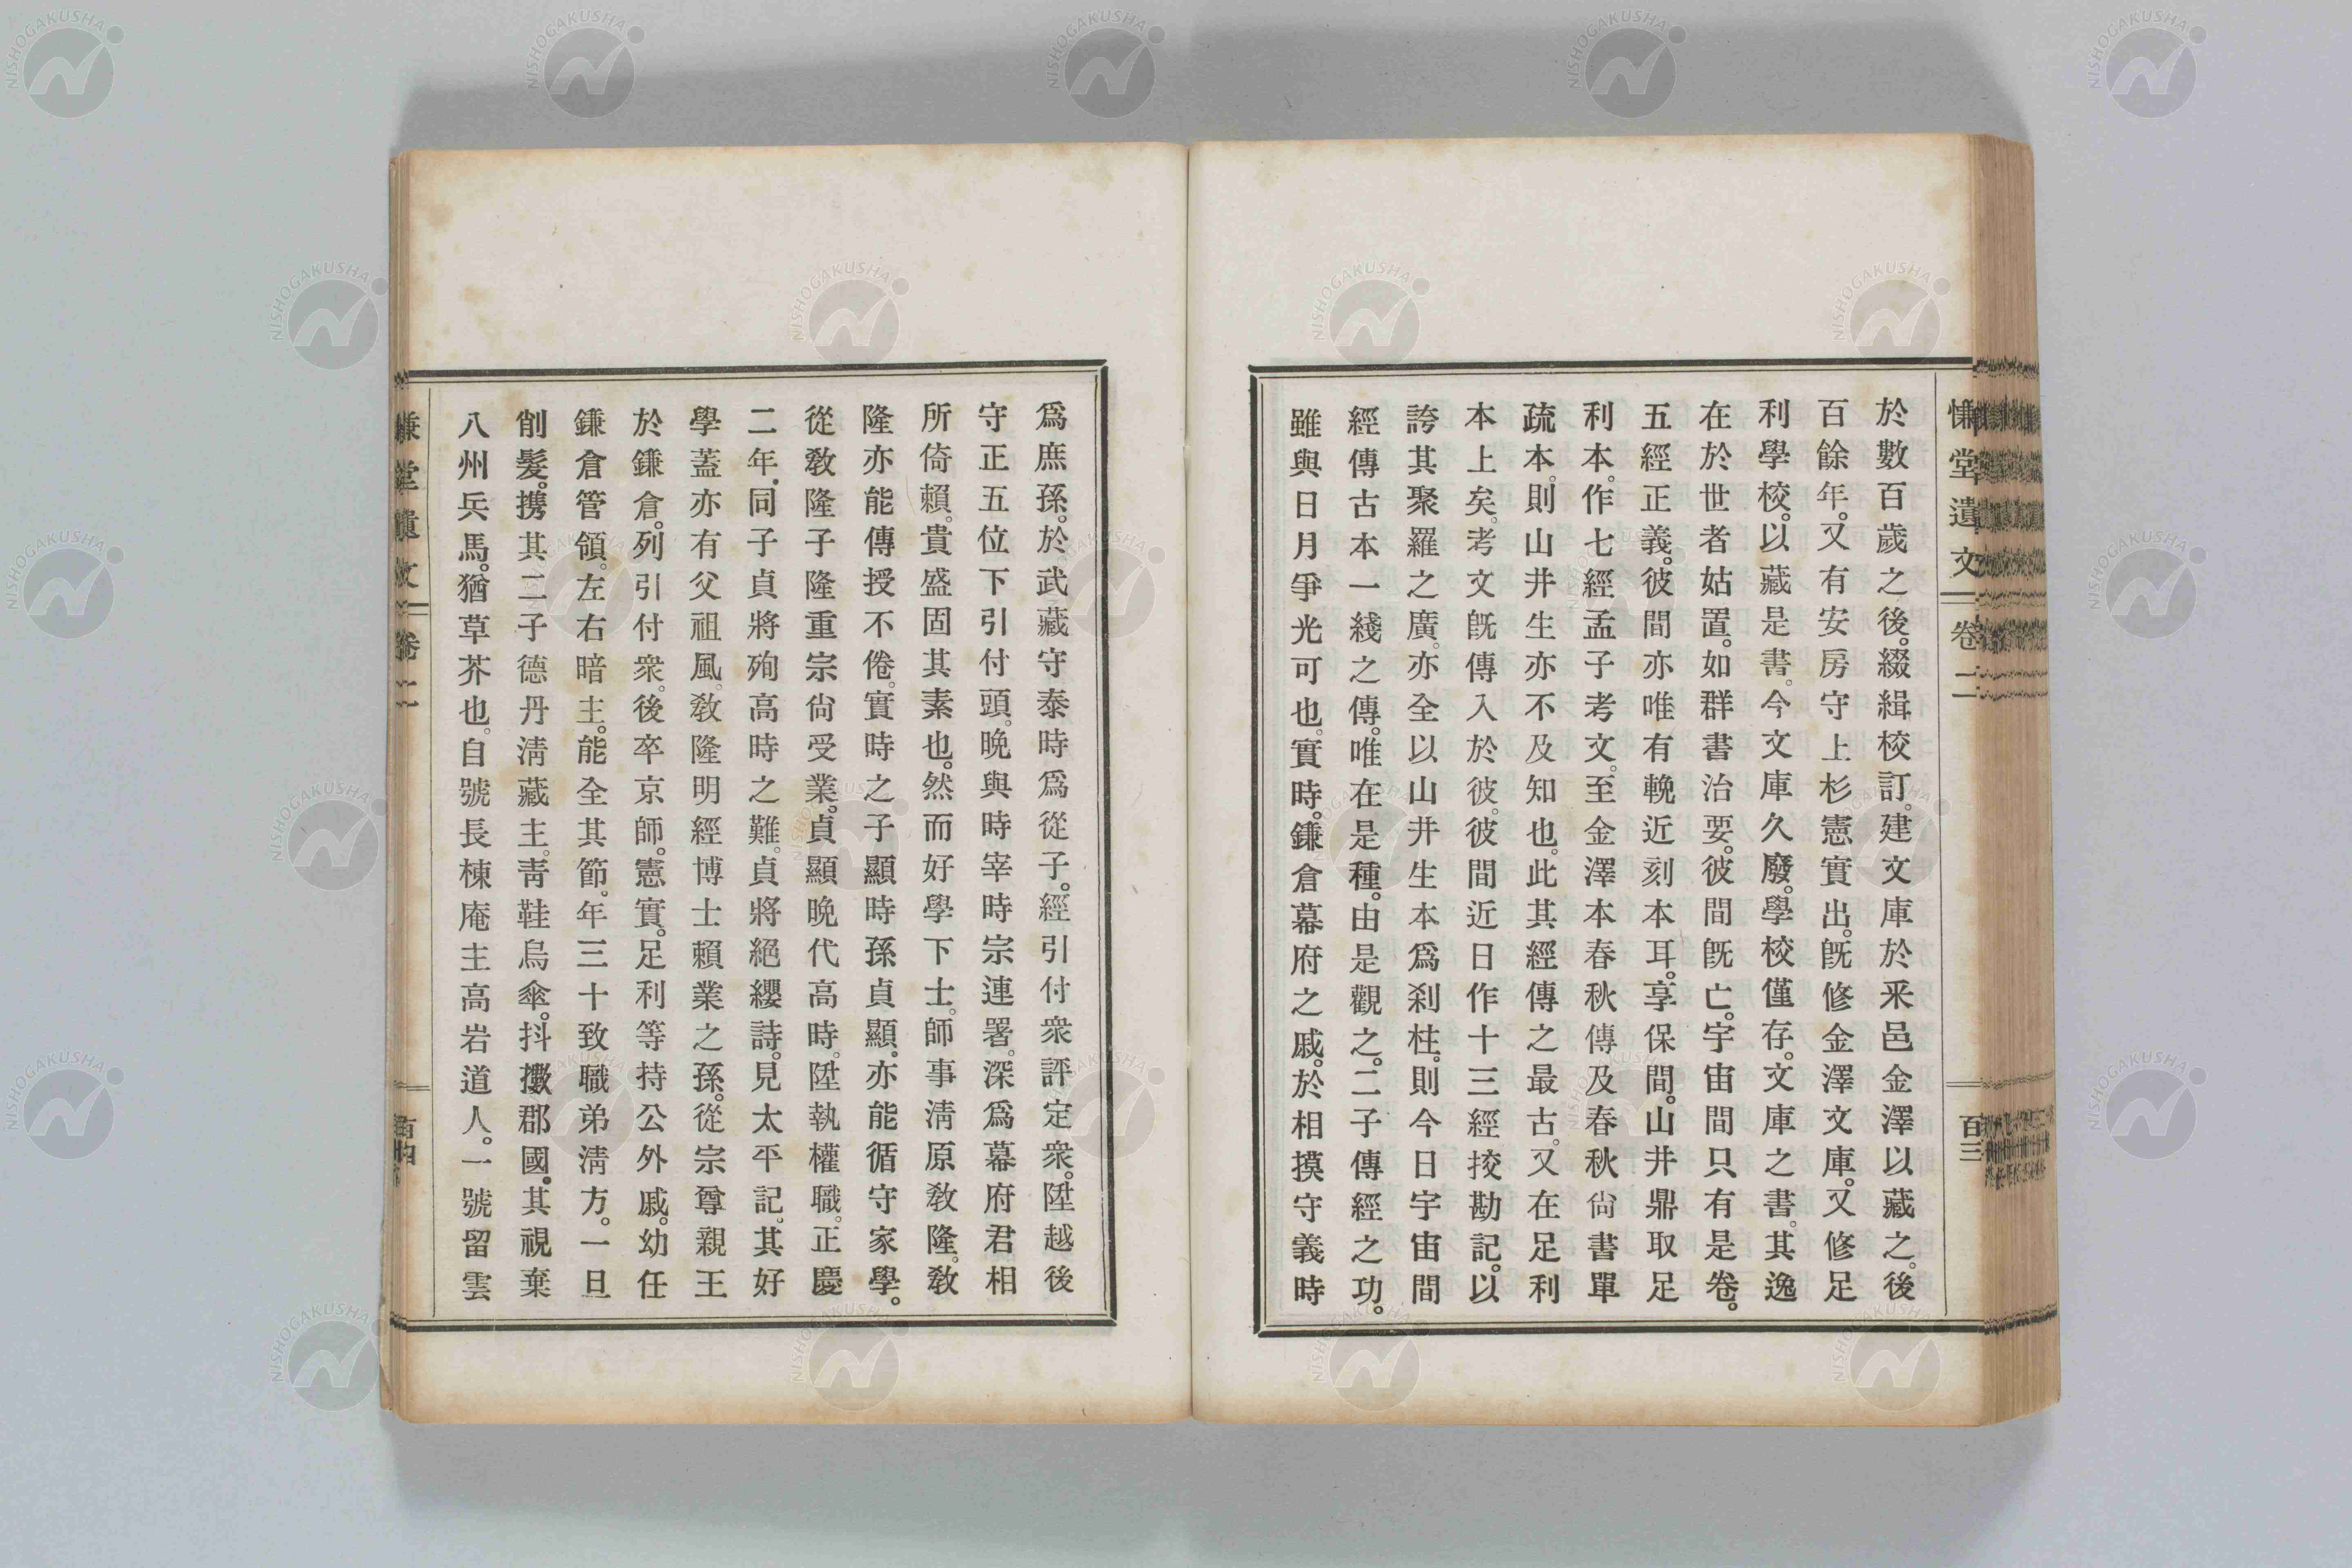 慊堂遺文 卷二 百三
於數百歲之後。綴緝校訂。建文庫於釆邑金澤以藏之。後
百餘年。又有安房守上杉憲實出。既修金澤文庫。又修足
利學校。以藏是書。今文庫久廢。學校僅存。文庫之書。其逸
在於世者姑置。如群書治要。彼間既亡。宇宙間只有是卷。
五經正義。彼間亦唯有輓近刻本耳。享保間。山井鼎取足
利本。作七經孟子考文。至金澤本春秋傳及春秋尙書單
疏本。則山井生亦不及知也。此其經傳之最古。又在足利
本上矣。考文既傳入於彼。彼間近日作十三經挍勘記。以
誇其聚羅之廣。亦全以山井生本爲刹柱。則今日宇宙間
經傳古本一綫之傳。唯在是種。由是觀之。二子傳經之功。
雖與日月爭光可也。實時。鎌倉幕府之戚。於相摸守義時
爲庶孫。於武藏守泰時爲從子。經引付衆評定衆。陞越後
守正五位下引付頭。晩與時宰時宗連署。深爲幕府君相
所倚賴。貴盛固其素也。然而好學下士。師事淸原敎隆。敎
隆亦能傳授不倦。實時之子顯時孫貞顯。亦能循守家學。
從敎隆子隆重宗尙受業。貞顯晩代高時。陞執權職。正慶
二年。同子貞將殉高時之難。貞將絕纓詩。見太平記。其好
學蓋亦有父祖風。敎隆明經博士賴業之孫。從宗尊親王
於鎌倉。列引付衆。後卒京師。憲實。足利等持公外戚。幼任
鎌倉管領。左右暗主。能全其節。年三十致職弟淸方。一旦
削髮。携其二子德丹淸藏主。靑鞋烏傘。抖擻郡國。其視棄
八州兵馬。猶草芥也。自號長棟庵主高岩道人。一號留雲
慊堂遺文 卷二 百四